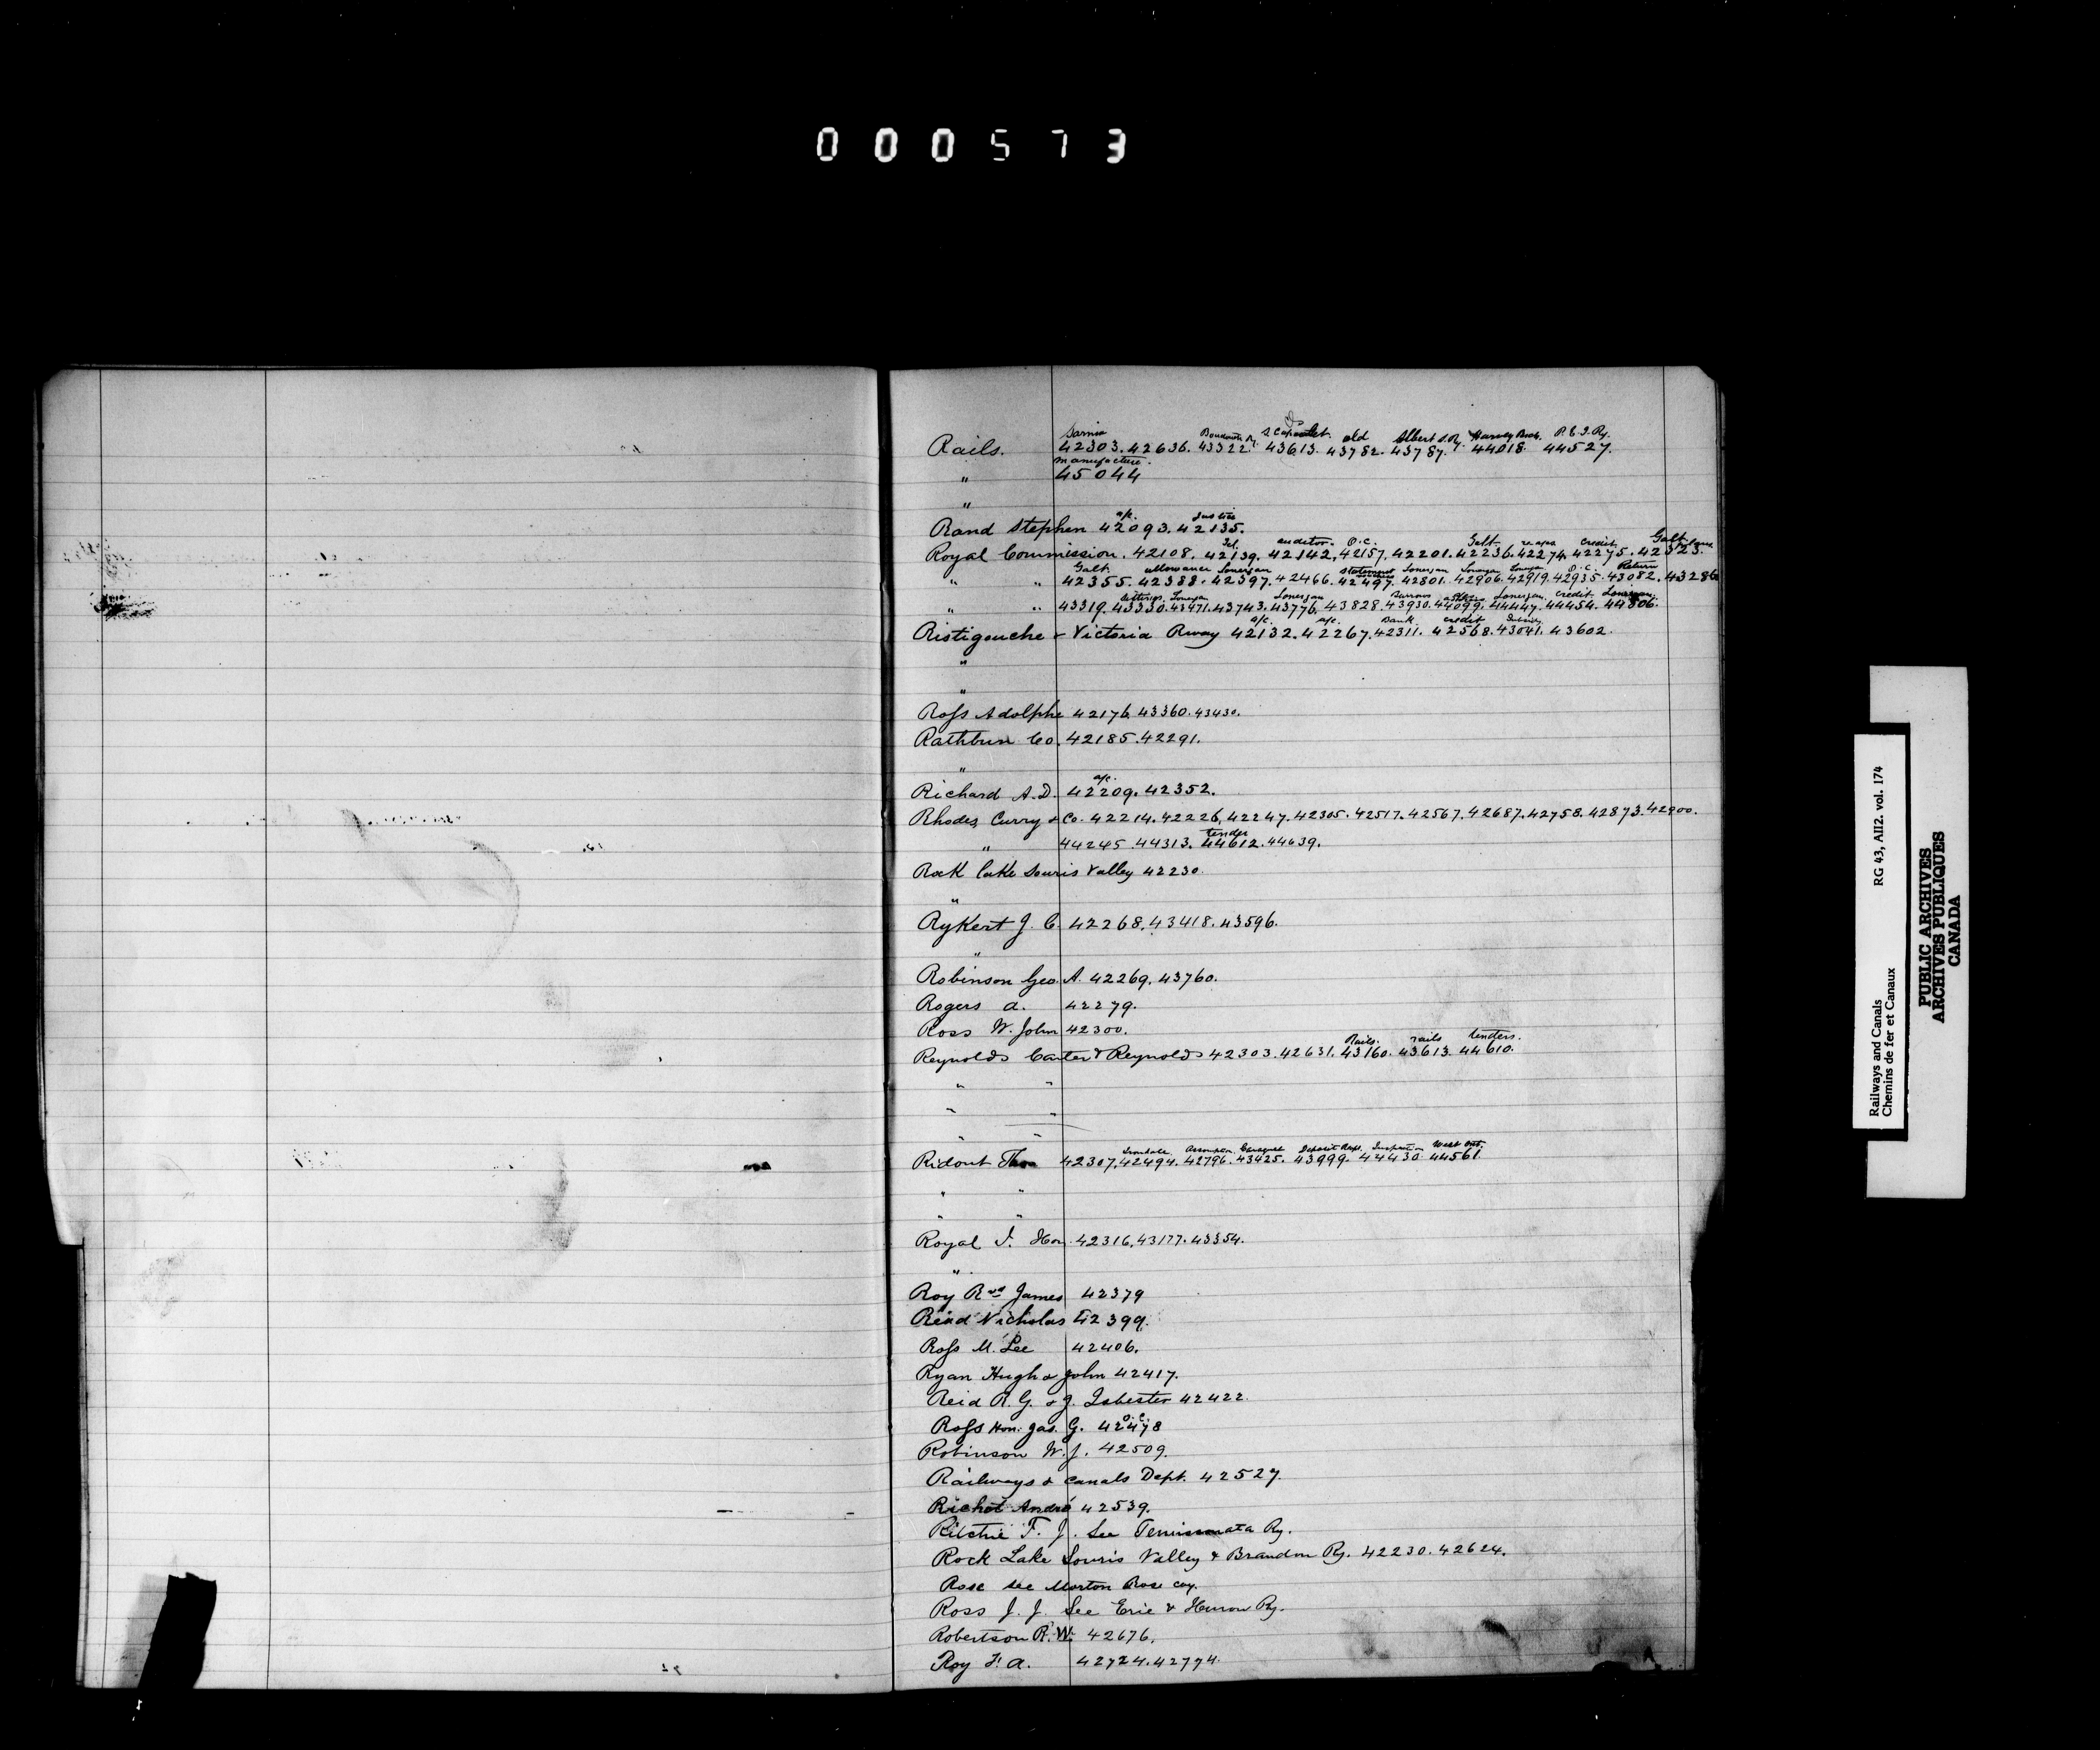 000573
Sarnia Boundary Ry. S. Cap old Albert S. Ry. Harvey Branch P.E.I. Ry.
Rails. 42303. 42636. 43322. 43613. 43782. 43787. 44018. 44527.
manufacture.
" 45044
"
a/c. Justice
Rand Stephen 42093. 42135.
Tel. auditor O.C. Galt credit Galt
Royal Commission. 42108. 42139. 42142. 42157. 42201. 42236. 42274. 42275. 42323.
Galt. allowance Lonergan statement Lonergan Lonergan O.C. Return
" " 42355. 42388. 42397. 42466. 42497. 42801. 42906. 42919. 42935. 43082. 43286
sittings Lonergan Lonergan Lonergan credit Lonergan
" " 43319. 43330. 43471. 43743. 43776. 43828. 43930. 44099. 44447. 44454. 44806.
a/c. a/c. Bank credit Subsidy
Ristigouche & Victoria Rway 42132. 42267. 42311. 42568. 43041. 43602.
"
"
Ross Adolphe 42176. 43360. 43430.
Rathbun Co. 42185. 42291.
"
a/c.
Richard A.D. 42209. 42352.
Rhodes, Curry & Co. 42214. 42226. 42247. 42305. 42517. 42567. 42687. 42758. 42873. 42900.
tender
" 44245. 44313. 44612. 44639.
Rock lake Souris Valley 42230.
"
Rykert J. C. 42268. 43418. 43596.
"
Robinson Geo. A. 42269. 43760.
Rogers A. 42279.
Ross W. John 42300.
Rails. rails tenders.
Reynolds Carter & Reynolds 42303. 42631. 43160. 43613. 44610.
" "
" "
" "
Irondale Assumption Caraquet Deposit Rec. Inspection West Ont.
Ridout Thos 42307. 42494. 42796. 43425. 43999. 44430. 44561.
" "
" "
Royal J. Hon. 42316. 43177. 43354.
"
Roy Revd James 42379
Reid Nicholas 42399.
Ross M. Lee 42406.
Ryan Hugh & John 42417.
Reid R. G. & J. Isbester 42422.
O.C.
Ross Hon. Jas. G. 42478
Robinson W. J. 42509.
Railways & Canals Dept. 42527.
Richot André 42539.
Ritchie F. J. See Temiscouata Ry.
Rock Lake Souris Valley & Brandon Ry. 42230. 42624.
Rose see Morton Rose coy.
Ross J. J. See Erie & Huron Ry.
Robertson R. W. 42676.
Roy F. A. 42724. 42774.
Railways and Canals RG 43, AII2. vol. 174
Chemins de fer et Canaux
PUBLIC ARCHIVES
ARCHIVES PUBLIQUES
CANADA